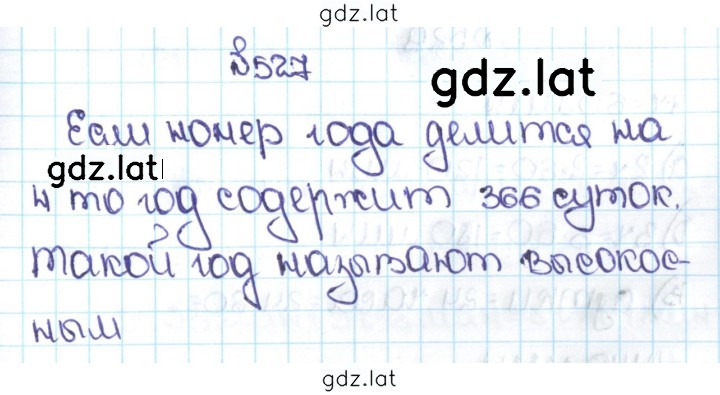 gdz.lat
№527
gdz.lat
Если номер года делится на
gdz.lat
4 то год содержит 366 суток.
такой год называют высокос-
ным
gdz.lat